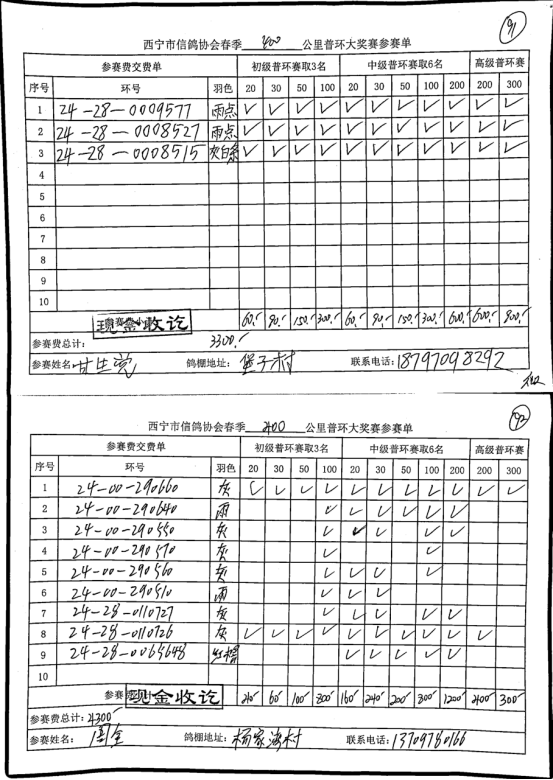 91
西宁市信鸽协会春季 400 公里普环大奖赛参赛单
参赛费交费单 初级普环赛取3名 中级普环赛取6名 高级普环赛
序号 环号 羽色 20 30 50 100 20 30 50 100 200 200 300
1 24-28-0009577 雨点 ✓ ✓ ✓ ✓ ✓ ✓ ✓ ✓ ✓ ✓ ✓
2 24-28-0008527 雨点 ✓ ✓ ✓ ✓ ✓ ✓ ✓ ✓ ✓ ✓ ✓
3 24-28-0008515 灰白条 ✓ ✓ ✓ ✓ ✓ ✓ ✓ ✓ ✓ ✓ ✓
4
5
6
7
8
9
10
现金收讫 60.- 90.- 150.- 300.- 60.- 90.- 150.- 300.- 600.- 600.- 900.-
参赛费总计: 3300.-
参赛姓名: 甘生 鸽棚地址: 堡子村 联系电话: 18797098292
92
西宁市信鸽协会春季 400 公里普环大奖赛参赛单
参赛费交费单 初级普环赛取3名 中级普环赛取6名 高级普环赛
序号 环号 羽色 20 30 50 100 20 30 50 100 200 200 300
1 24-00-290660 灰 ✓ ✓ ✓ ✓ ✓ ✓ ✓ ✓ ✓ ✓ ✓
2 24-00-290640 雨 ✓ ✓ ✓ ✓ ✓ ✓
3 24-00-290550 灰 ✓ ✓ ✓ ✓ ✓
4 24-00-290570 灰 ✓ ✓
5 24-00-290560 灰 ✓ ✓ ✓ ✓
6 24-00-290510 雨 ✓ ✓ ✓
7 24-28-0110727 灰 ✓ ✓ ✓ ✓ ✓
8 24-28-0110726 灰 ✓ ✓ ✓ ✓ ✓ ✓ ✓ ✓ ✓ ✓
9 24-28-0065648 ✓ ✓ ✓ ✓ ✓
10
参赛 现金收讫 40 60 100 800 160 240 200 800 1200 400 300
参赛费总计: 4300
参赛姓名: 周全 鸽棚地址: 杨家湾村 联系电话: 13709780166